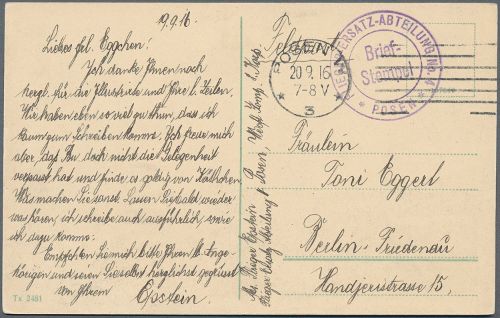 19.9.16.
Liebes frl. Eggchen!
Ich danke Ihnen noch
herzl. für die Illustrierte und Ihre l. Zeilen.
Wir haben eben so viel zu thun, dass ich
kaum zum Schreiben komme. Ich freue mich
aber, daß Du doch nicht die Gelegenheit
verpasst hat und finde es goldig von Käthchen.
Was machen Sie sonst. Lassen Sie bald wieder
was hören, ich schreibe auch ausführlich, sowie
ich dazu komme.
Empfehlen Sie mich bitte Ihren w. Ange-
hörigen und seien Sie selbst herzlichst gegrüsst
von Ihrem
Epstein.
Tx 2481
Abs. Flieger Epstein
Flieger Ersatz Abteilung Posen, Werft Komp. I. Korp.
Feldpost
POSEN
20.9.16
7-8 V
* 3 *
FLIEGER-ERSATZ-ABTEILUNG Nr. 4
Brief-
Stempel
* POSEN *
Fräulein
Toni Eggert
Berlin-Friedenau
Handjeristrasse 15,